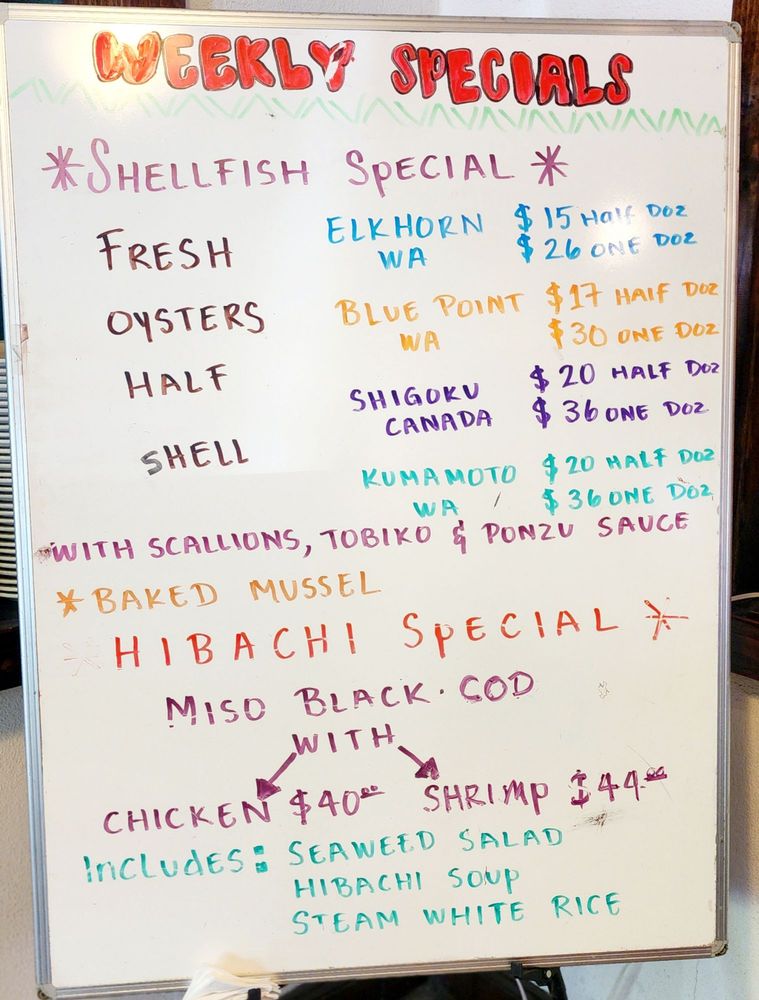 WEEKLY SPECIALS
*SHELLFISH SPECIAL*
FRESH
OYSTERS
HALF
SHELL
ELKHORN $15 HalF DOZ
WA $26 ONE DOZ
BLUE POINT $17 HAlF DOZ
WA $30 ONE DOZ
SHIGOKU $20 HALF DOZ
CANADA $36 ONE DOZ
KUMAMOTO $20 HALF DOZ
WA $36 ONE DOZ
WITH SCALLIONS, TOBIKO & PONZU SAUCE
*BAKED MUSSEL
*HIBACHI SPECIAL*
MISO BLACK·COD
WITH
CHICKEN $40.00 SHRIMP $44.00
INCludES: SEAWEED SALAD
HIBACHI SOUP
STEAM WHITE RICE